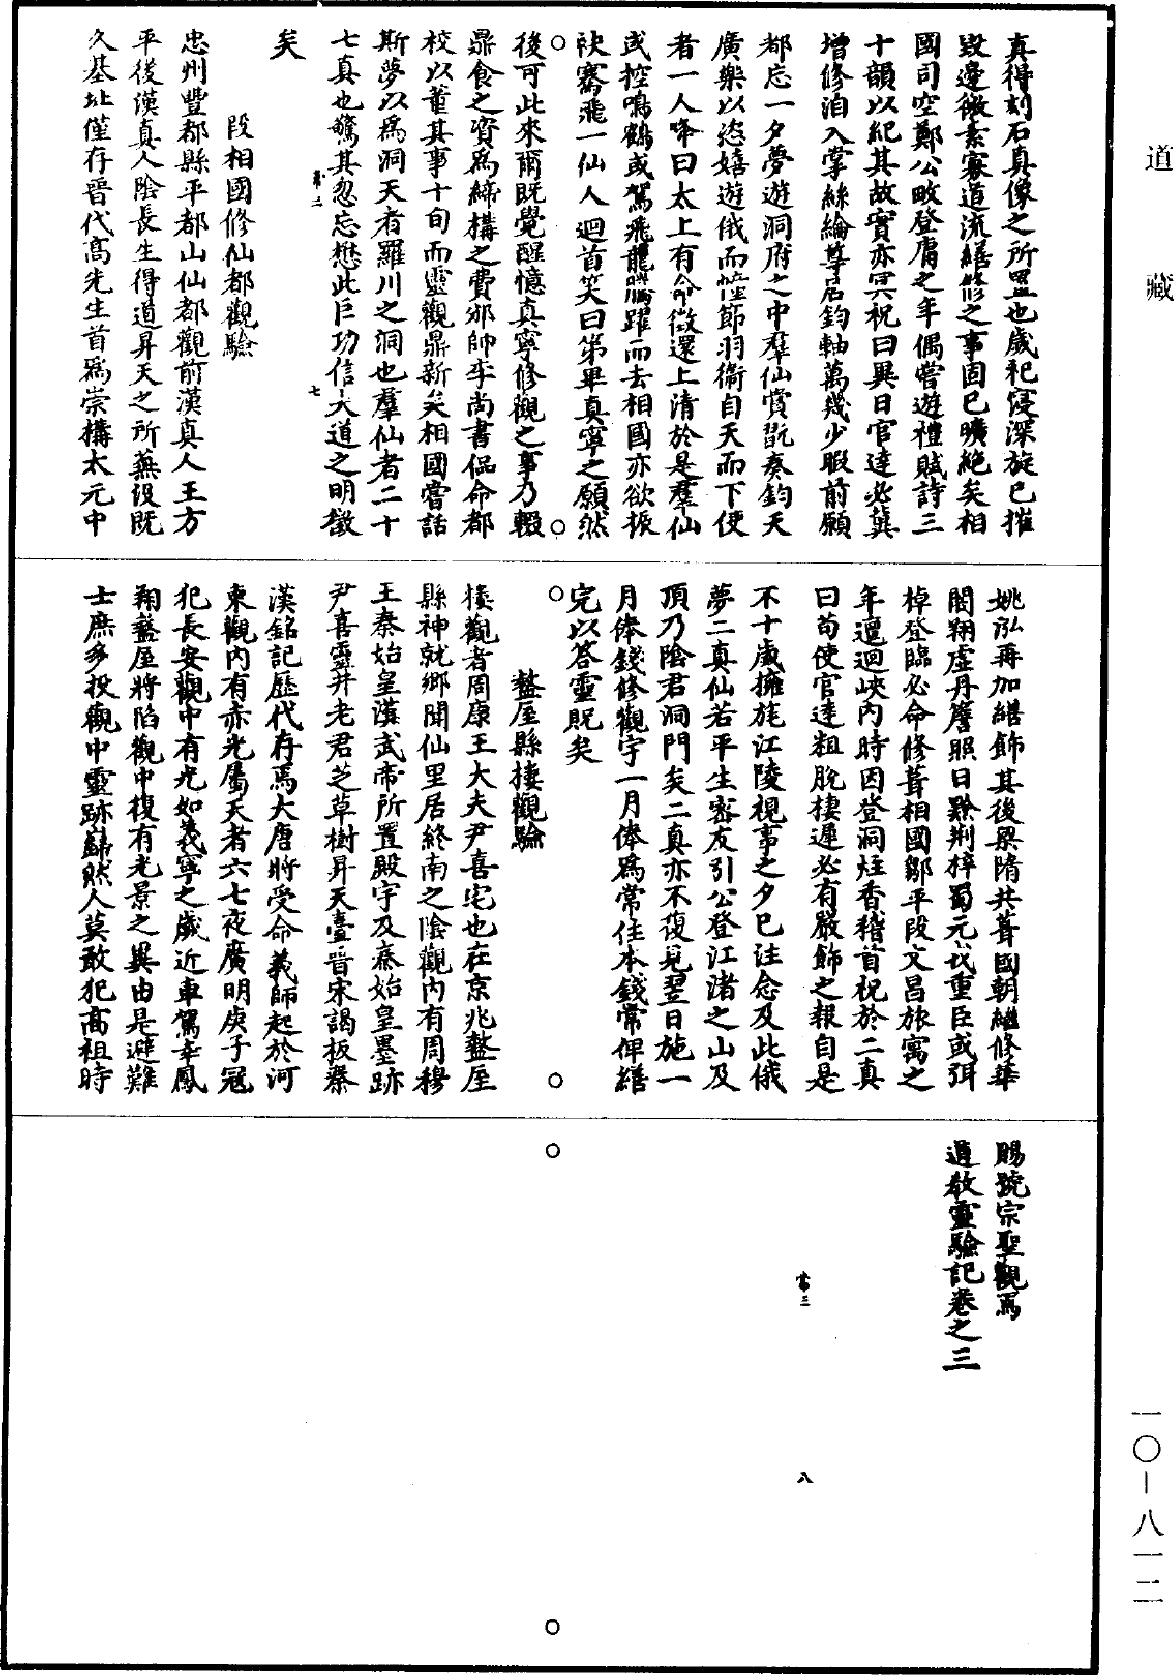 道藏
真得刻石真像之所置也歲祀寖深旋已摧
毀邊徼素寡道流繕修之事固已曠絶矣相
國司空鄭公畋登庸之年偶嘗遊禮賦詩三
十韻以紀其故實亦冥祝曰異日官達必冀
增修洎入掌絲綸尊居鈞軸萬幾少暇前願
都忘一夕夢遊洞府之中羣仙賞翫奏鈞天
廣樂以恣嬉遊俄而幢節羽衞自天而下使
者一人來曰太上有命徵還上清於是羣仙
或控鳴鶴或駕飛龍騰躍而去相國亦欲振
袂騫飛一仙人迴首笑曰第畢真寧之願然
後可此來爾既覺醒憶真寧修觀之事乃輟
鼎食之資爲締構之費邠帥李尚書侶命都
校以董其事十旬而靈觀鼎新矣相國嘗話
斯夢以爲洞天者羅川之洞也羣仙者二十
七真也驚其忽忘懋此巨功信大道之明徵
矣
常三 七
段相國修仙都觀驗
忠州豐都縣平都山仙都觀前漢真人王方
平後漢真人陰長生得道昇天之所蕪没既
久基址僅存晉代高先生首爲崇構太元中
姚泓再加繕飾其後梁隋共葺國朝繼修華
閣翔虛丹簷照日黔荆梓蜀元戎重臣或弭
棹登臨必命修葺相國鄒平段文昌旅寓之
年邅迴峽内時因登洞炷香稽首祝於二真
曰苟使官達粗脱棲遲必有嚴飾之報自是
不十歲擁旄江陵視事之夕已注念及此俄
夢二真仙若平生密友引公登江渚之山及
頂乃陰君洞門矣二真亦不復見翌日施一
月俸錢修觀宇一月俸爲常住本錢常俾繕
完以答靈貺矣
盩厔縣樓觀驗
樓觀者周康王大夫尹喜宅也在京兆盩厔
縣神就鄉聞仙里居終南之陰觀内有周穆
王秦始皇漢武帝所置殿宇及秦始皇墨跡
尹喜靈井老君芝草樹昇天臺晉宋謁板秦
漢銘記歷代存焉大唐將受命義師起於河
東觀内有赤光屬天者六七夜廣明庚子冦
犯長安觀中有光如義寧之歲近車駕幸鳳
翔盩厔將陷觀中復有光景之異由是避難
士庶多投觀中靈跡巋然人莫敢犯高祖時
賜號宗聖觀焉
道教靈驗記卷之三
常三 八
一〇—八一二